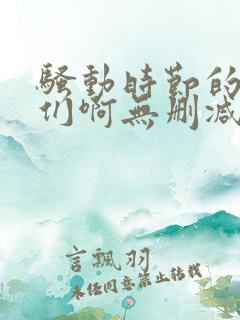 骚動時節的
们啊無删减
言飄羽
未经同意禁止转载